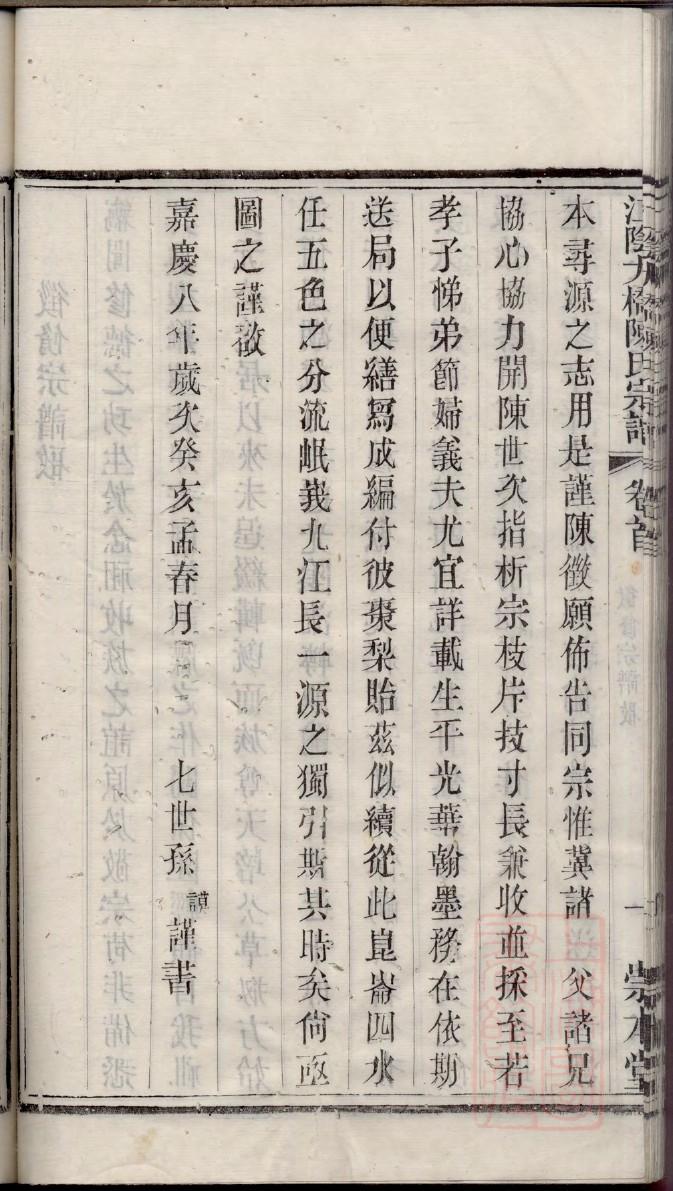 江陰九橋陳氏宗譜 卷首 一 崇本堂
本尋源之志用是謹陳徵願佈告同宗惟冀諸 父諸兄
協心協力開陳世次指析宗枝片技寸長兼收並採至若
孝子悌弟節婦義夫尤宜詳載生平光華翰墨務在依期
送局以便繕寫成編付彼棗梨貽茲似續從此崑崙四水
任五色之分流岷峩九江長一源之獨引斯其時矣尙亟
圖之謹啟
嘉慶八年歲次癸亥孟春月 七世孫 謨 謹書